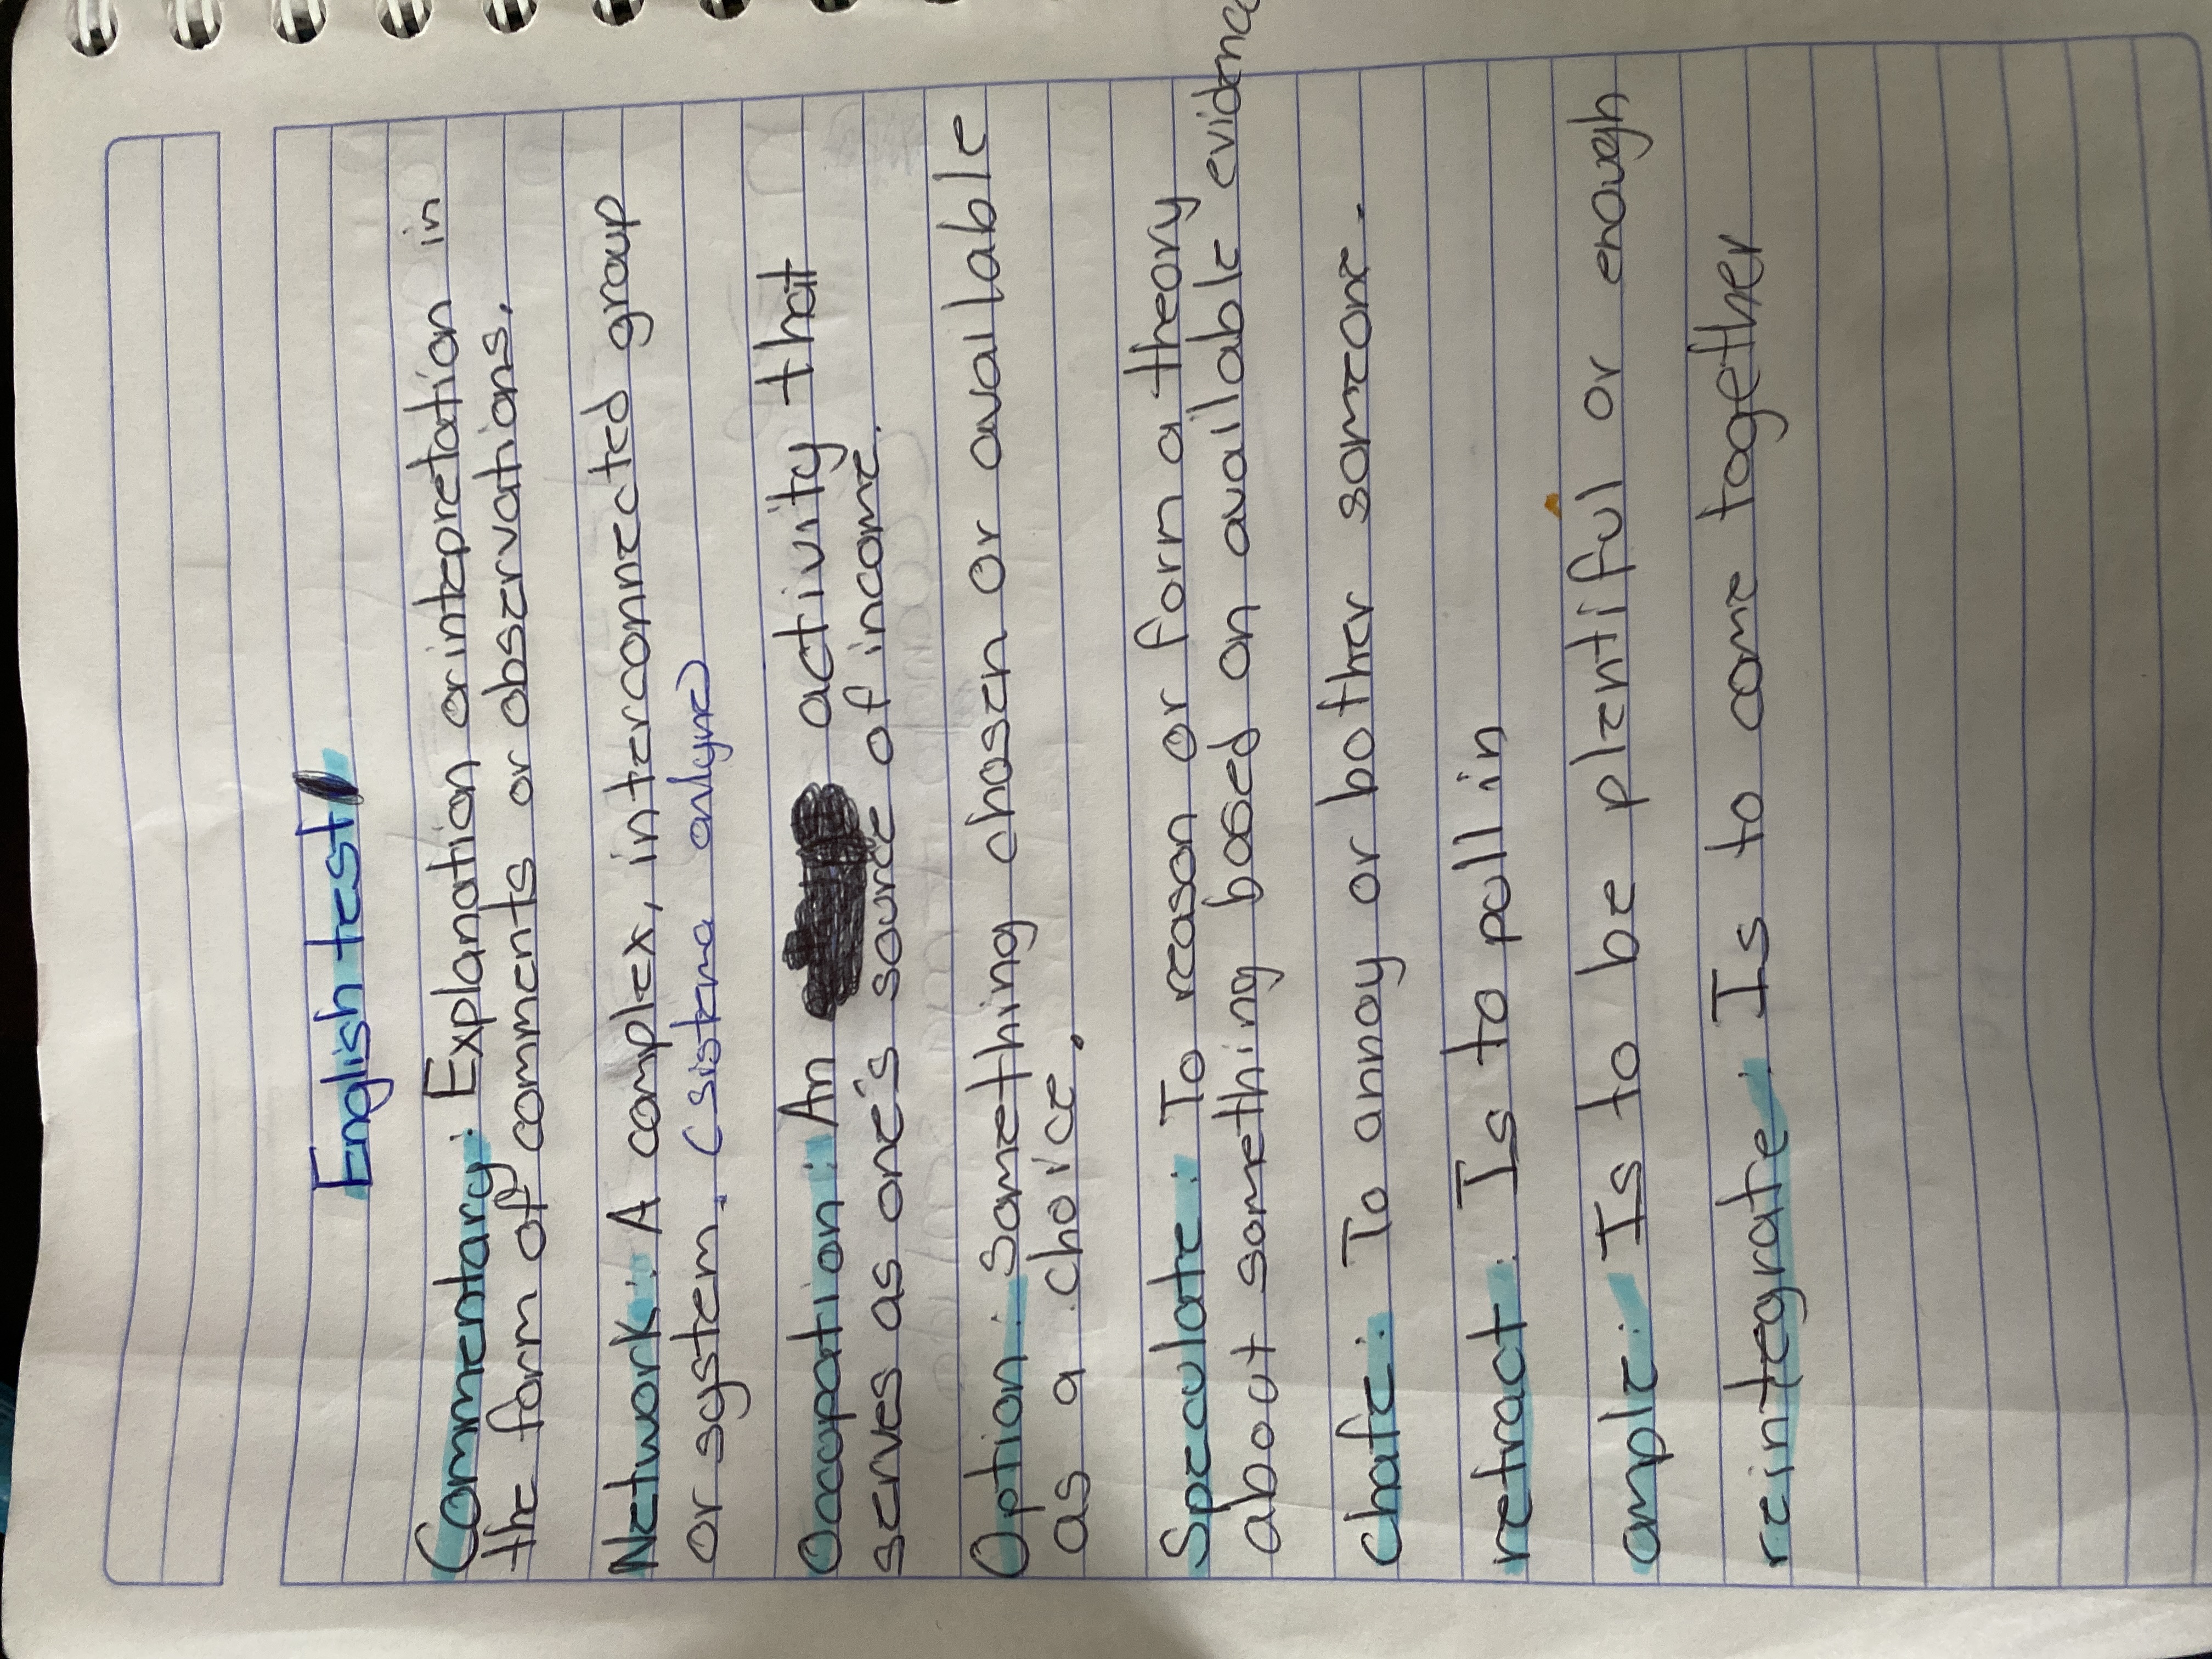 English test
Commentary: Explanation or intepretation in
the form of comments or observations.
Network: A complex, interconnected group
or system. (sistema onlyne)
Occupation: An activity that
serves as one's source of income.
Option: Something chosen or available
as a choice.
Speculate: To reason or form a theory
about something based on available evidence
chafe: To annoy or bother someone.
retract: Is to pull in
ample: Is to be plentiful or enough
reintegrate: Is to come together